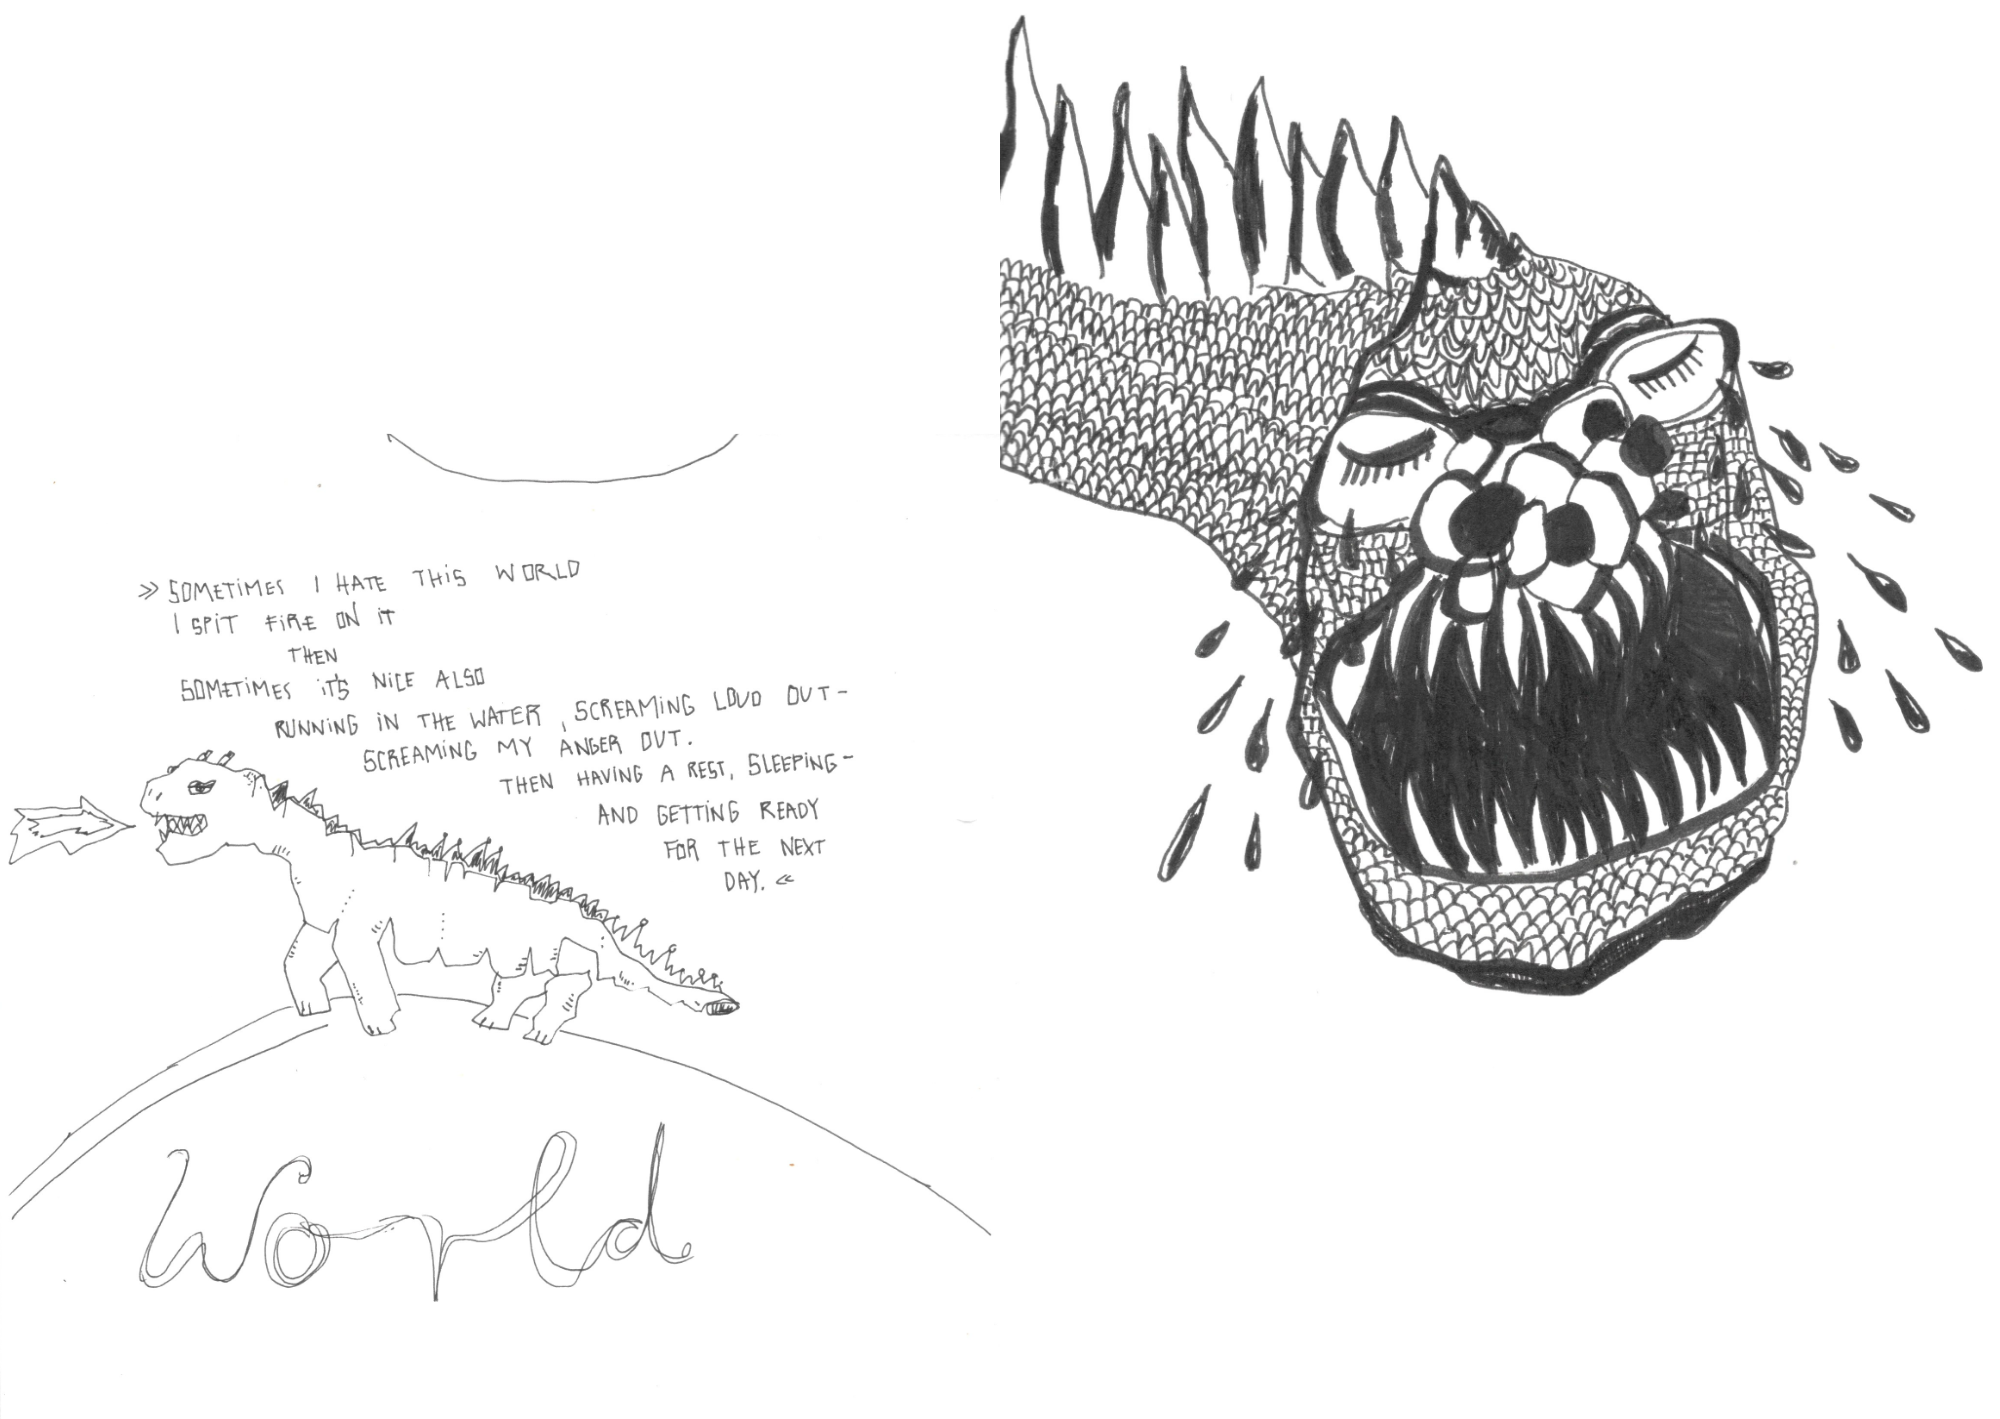 » SOMETIMES I HATE THIS WORLD
I SPIT FIRE ON IT
THEN
SOMETIMES IT'S NICE ALSO
RUNNING IN THE WATER, SCREAMING LOUD OUT-
SCREAMING MY ANGER OUT.
THEN HAVING A REST, SLEEPING-
AND GETTING READY
FOR THE NEXT
DAY. «
World